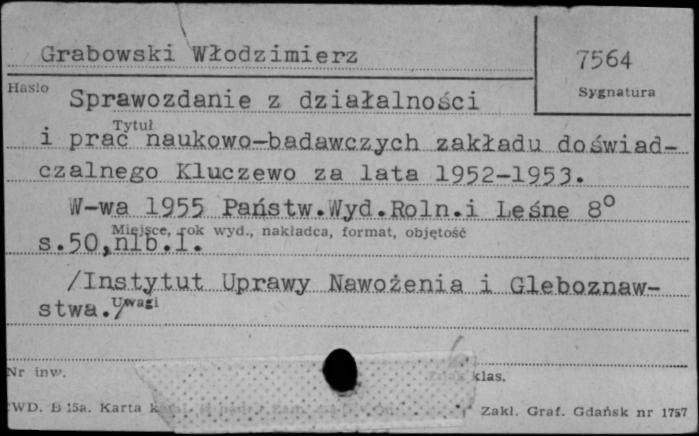 Grabowski Włodzimierz
7564
Hasło
Sygnatura
Sprawozdanie z działalności
Tytuł
i prac naukowo-badawczych zakładu doświad-
czalnego Kluczewo za lata 1952-1953.
W-wa 1955 Państw.Wyd.Roln.i Leśne 8°
Miejsce, rok wyd., nakładca, format, objętość
s.50,nlb.1.
/Instytut Uprawy Nawożenia i Gleboznaw-
stwa./
Uwagi
Nr inw.
klas.
WD. B 15a. Karta
Zakł. Graf. Gdańsk nr 1757